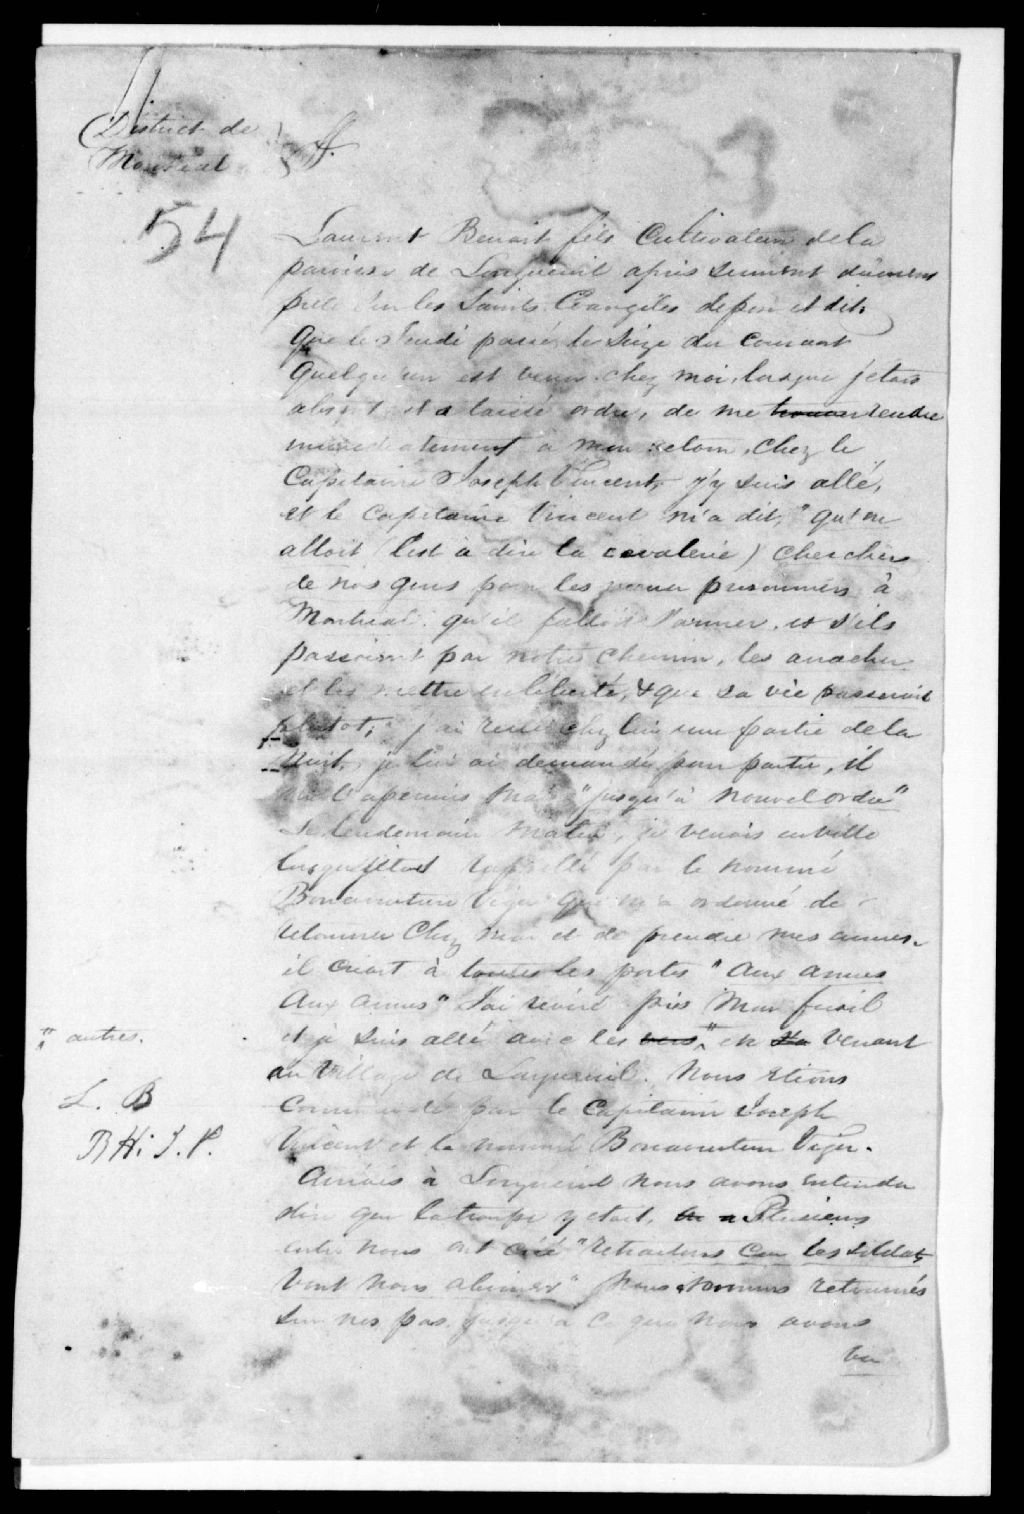 District de
Montréal
54
Laurent Benoit fils Cultivateur de la
paroisse de Longueuil après serment dûment
prêté sur les Saints Evangiles depose et dit
Que le Jeudi passé, le Seize du courant
Quelqu'un est venu chez moi, lorsque j'etois
absent et a laissé ordre, de me rendre
immediatement à mon retour, chez le
Capitaine Joseph Vincent, j'y suis allé,
et le Capitaine Vincent m'a dit, "qu'on
alloit (c'est à dire la cavalerie) chercher
de nos gens pour les mener prisonniers à
Montreal. qu'il falloit s'armer. et s'ils
passoient par notre chemin, les arracher
et les mettre en liberté, & que sa vie passeroit
plutot; j'ai resté chez lui une partie de la
Nuit, je lui ai demandé pour partir, il
me l'a permis mais "jusqu'à nouvel ordre"
Le lendemain matin, je venois en ville
lorsque j'etois rappellé par le nommé
Bonaventure Viger qui m'a ordonné de
retourner Chez moi et de prendre mes armes.
il criait à toutes les portes "Aux armes
Aux armes" J'ai pris mon fusil
et je suis allé avec les " en venant
" autres.
au Village de Longueuil. Nous etions
L. B
commandé par le Capitaine Joseph
B H. J. P.
Vincent et le nommé Bonaventure Viger.
Arrivés à Longueuil nous avons entendu
dire que la troupe y etait, Plusieurs
entre nous ont crié "retractons car les soldats
vont nous abimer" Nous sommes retournés
sur nos pas jusqu'à ce que nous avons
vu